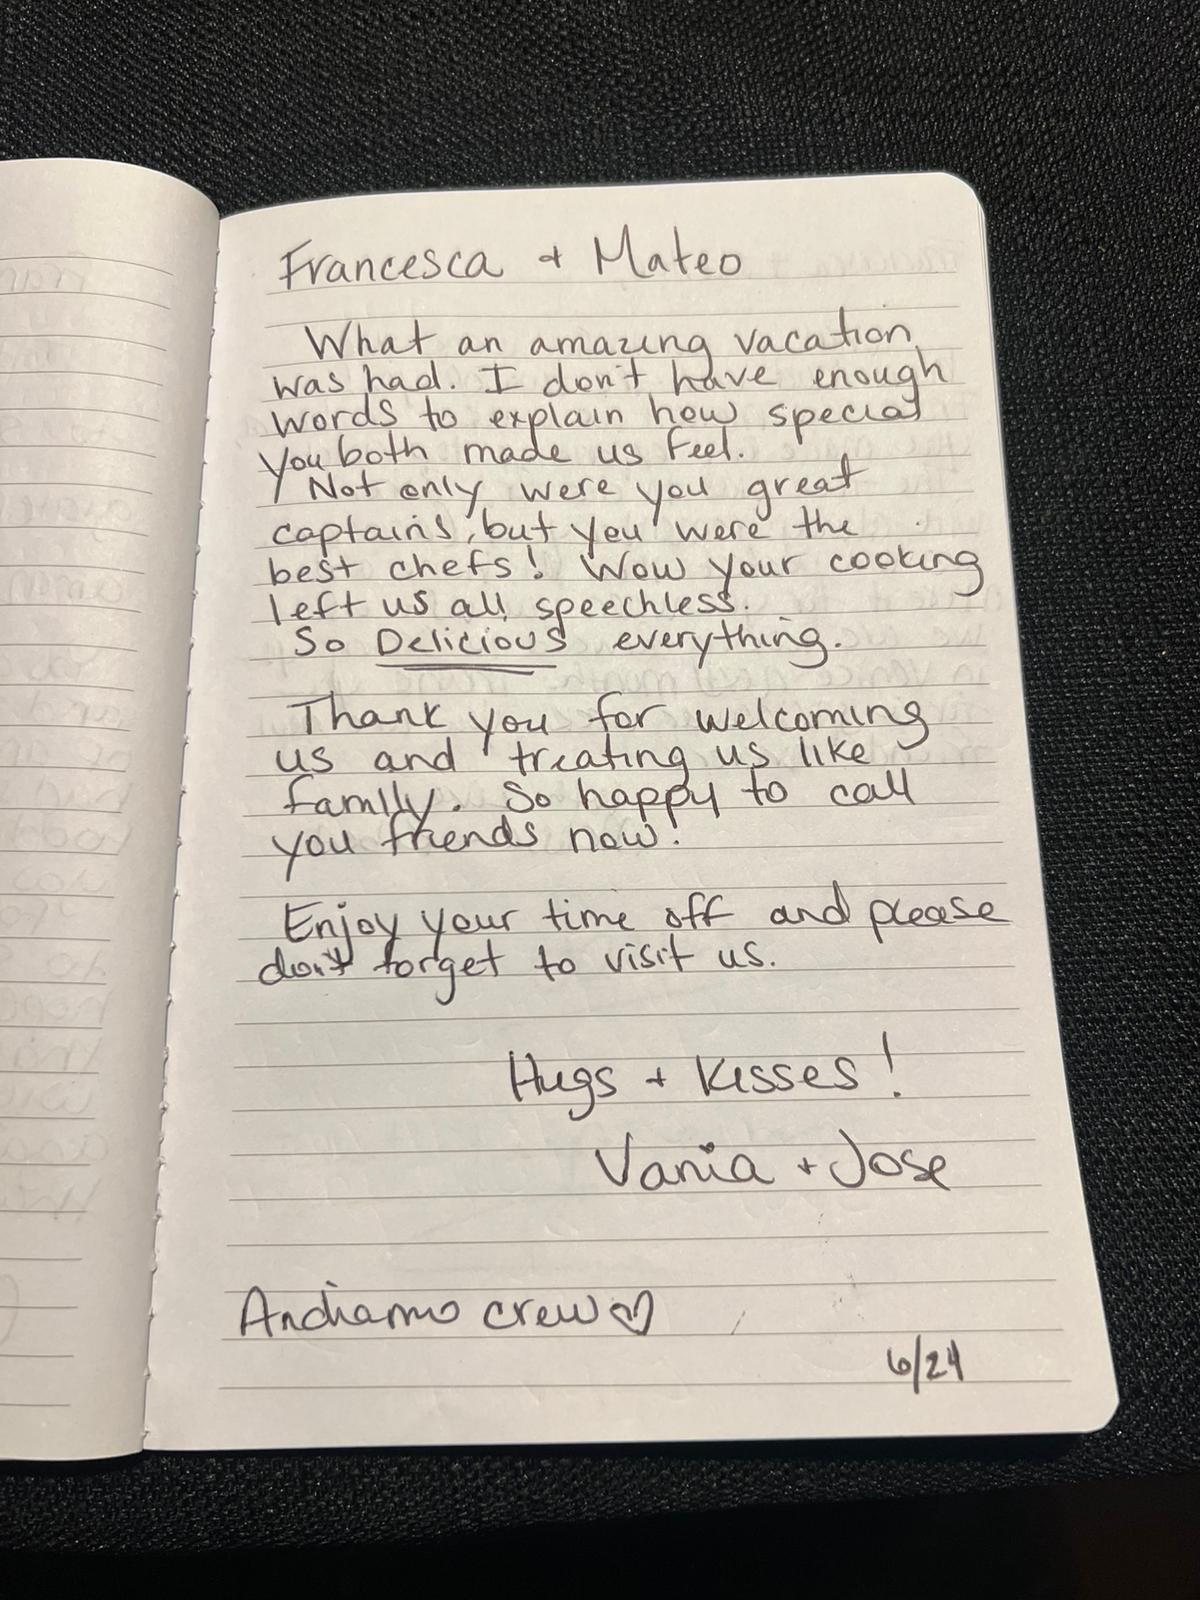 Francesca + Mateo
What an amazing vacation
was had. I don't have enough
words to explain how special
you both made us feel.
Not only were you great
captains, but you were the
best chefs! Wow your cooking
left us all speechless.
So Delicious everything.
Thank you for welcoming
us and treating us like
family. So happy to call
you friends now!
Enjoy your time off and please
don't forget to visit us.
Hugs + Kisses!
Vania + Jose
Andiamo crew♡
6/24